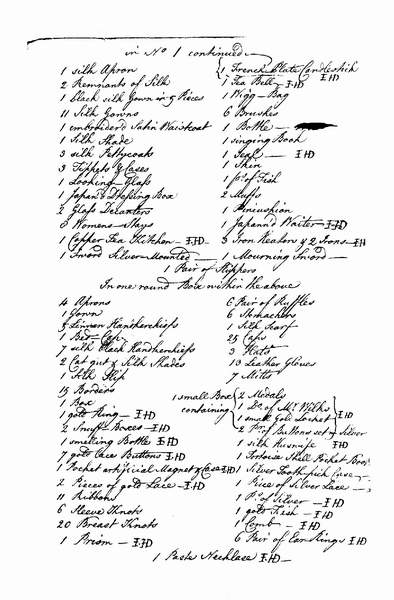 in No 1 continued
1 silk Apron
2 Remnants of Silk
1 black silk Gown in 5 Pieces
11 Silk Gowns
1 embroider'd Satin Waistcoat
1 Silk Shade
3 silk Pettycoats
3 Tippets & Cases
1 Looking Glass
1 Japan'd Dressing Box
2 Glass Decanters
3 Womens Stays
1 Copper Tea Kitchen - IHD
1 Sword Silver Mounted
1 French Plate Candlestick
1 Tea Bell - IHD
1 Wigg - Bag
6 Brushes
1 Bottle
1 singing Book
1 Seal - IHD
1 Skin
1 pr. of Fish
2 Muffs
1 Pincushion
1 Japann'd Waiter - IHD
3 Iron Heaters & 2 Irons - IH
1 Mourning Sword
1 Pair of Slippers
In one round Box within the above
4 Aprons
1 Gown
5 Linnen Handkerchiefs
1 Bed Cap
7 silk Black Handkerchiefs
2 Cat gut & Silk Shades
1 Silk Slip
15 Borders
1 Box
1 gold Ring - IHD
2 Snuff Boxes - IHD
1 smelling Bottle IHD
7 gold laces Buttons IHD
1 Pocket artificial Magnet & Case IHD
2 Pieces of gold Lace - IHD
11 Ribbons
6 Sleeve Knots
20 Breast Knots
1 Prism - IHD
6 Pair of Ruffles
6 Stomachers
1 Silk Scarf
25 Caps
3 Hatts
13 Leather Gloves
7 Mitts
1 small Box containing
2 Medals
1 Do. of Mr. Wilks
1 small Gold Locket
2 Pr. of Buttons set in Silver
IHD
1 silk Husnife IHD
1 Tortoise Shell Pocket Book
1 Silver Toothpick Case
1 Piece of Silver Lace
1 Ps. of Silver - IHD
1 gold Fish - IHD
1 Comb - IHD
6 Pair of Ear Rings IHD
1 Paste Necklace IHD